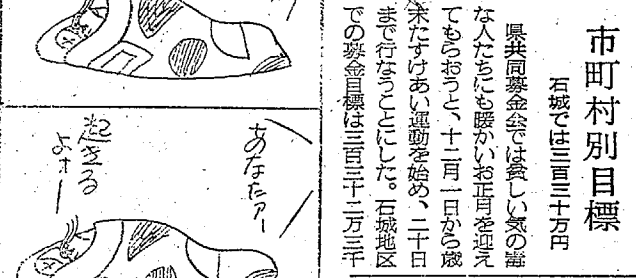 市町村別目標
石城では三百三十万円
県共同募金会では貧しい気の毒
な人たちにも暖かいお正月を迎え
てもらおうと、十二月一日から歳
末たすけあい運動を始め、二十日
まで行なうことにした。石城地区
での募金目標は三百三十二万三千
あなたァー
起きる
よォー